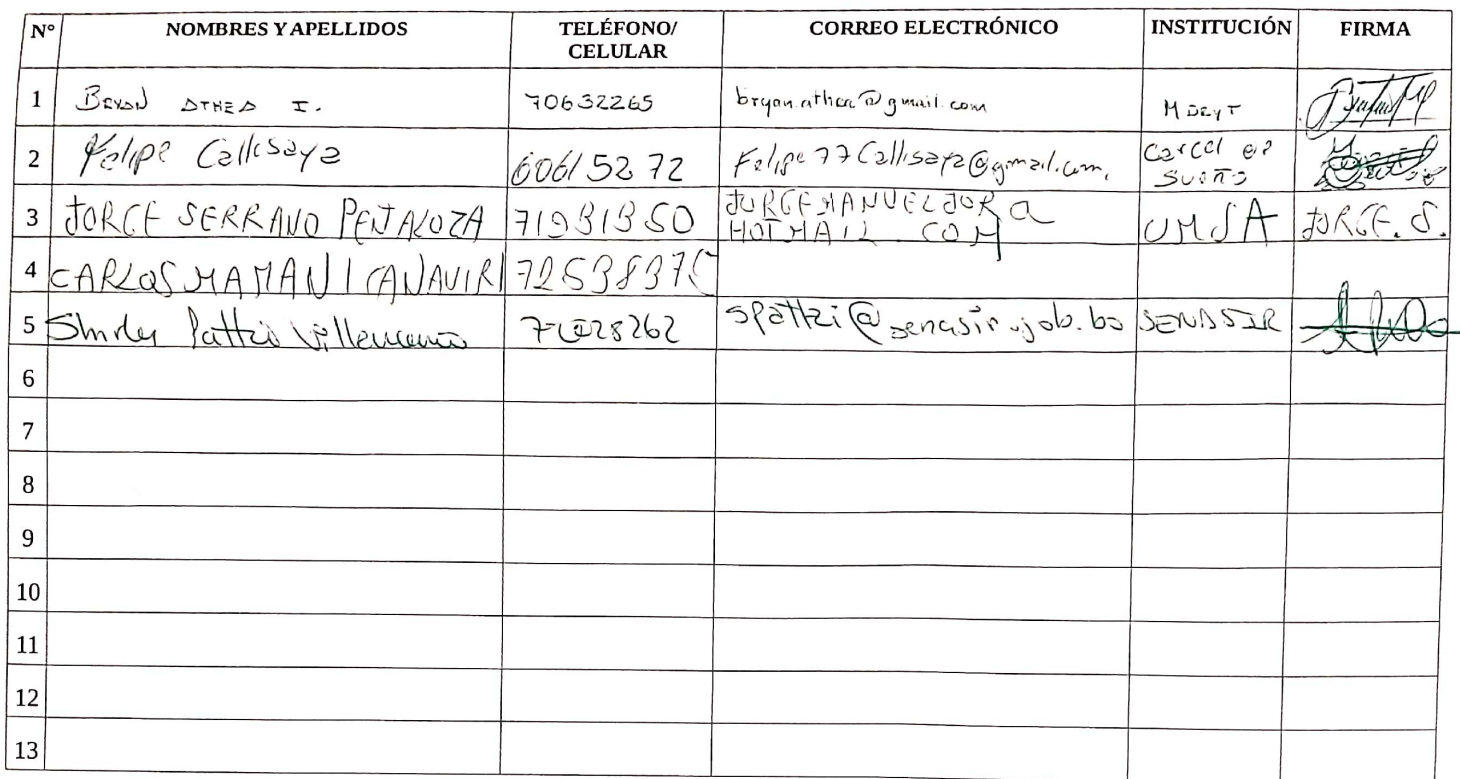 N° NOMBRES Y APELLIDOS TELÉFONO/ CELULAR CORREO ELECTRÓNICO INSTITUCIÓN FIRMA
1 70632265 bryan.athea@gmail.com
2 Felipe Callisaya 60615272 Felipe77Callisaya@gmail.com.
3 JORGE SERRANO PEÑALOZA 71931350 JORGEMANUELJOR@ HOTMAIL.COM UMSA JORGE.S.
4 CARLOS MAMANI CANAVIRI
5 Pattzi spattzi@senasir.gob.bo SENASIR
6
7
8
9
10
11
12
13